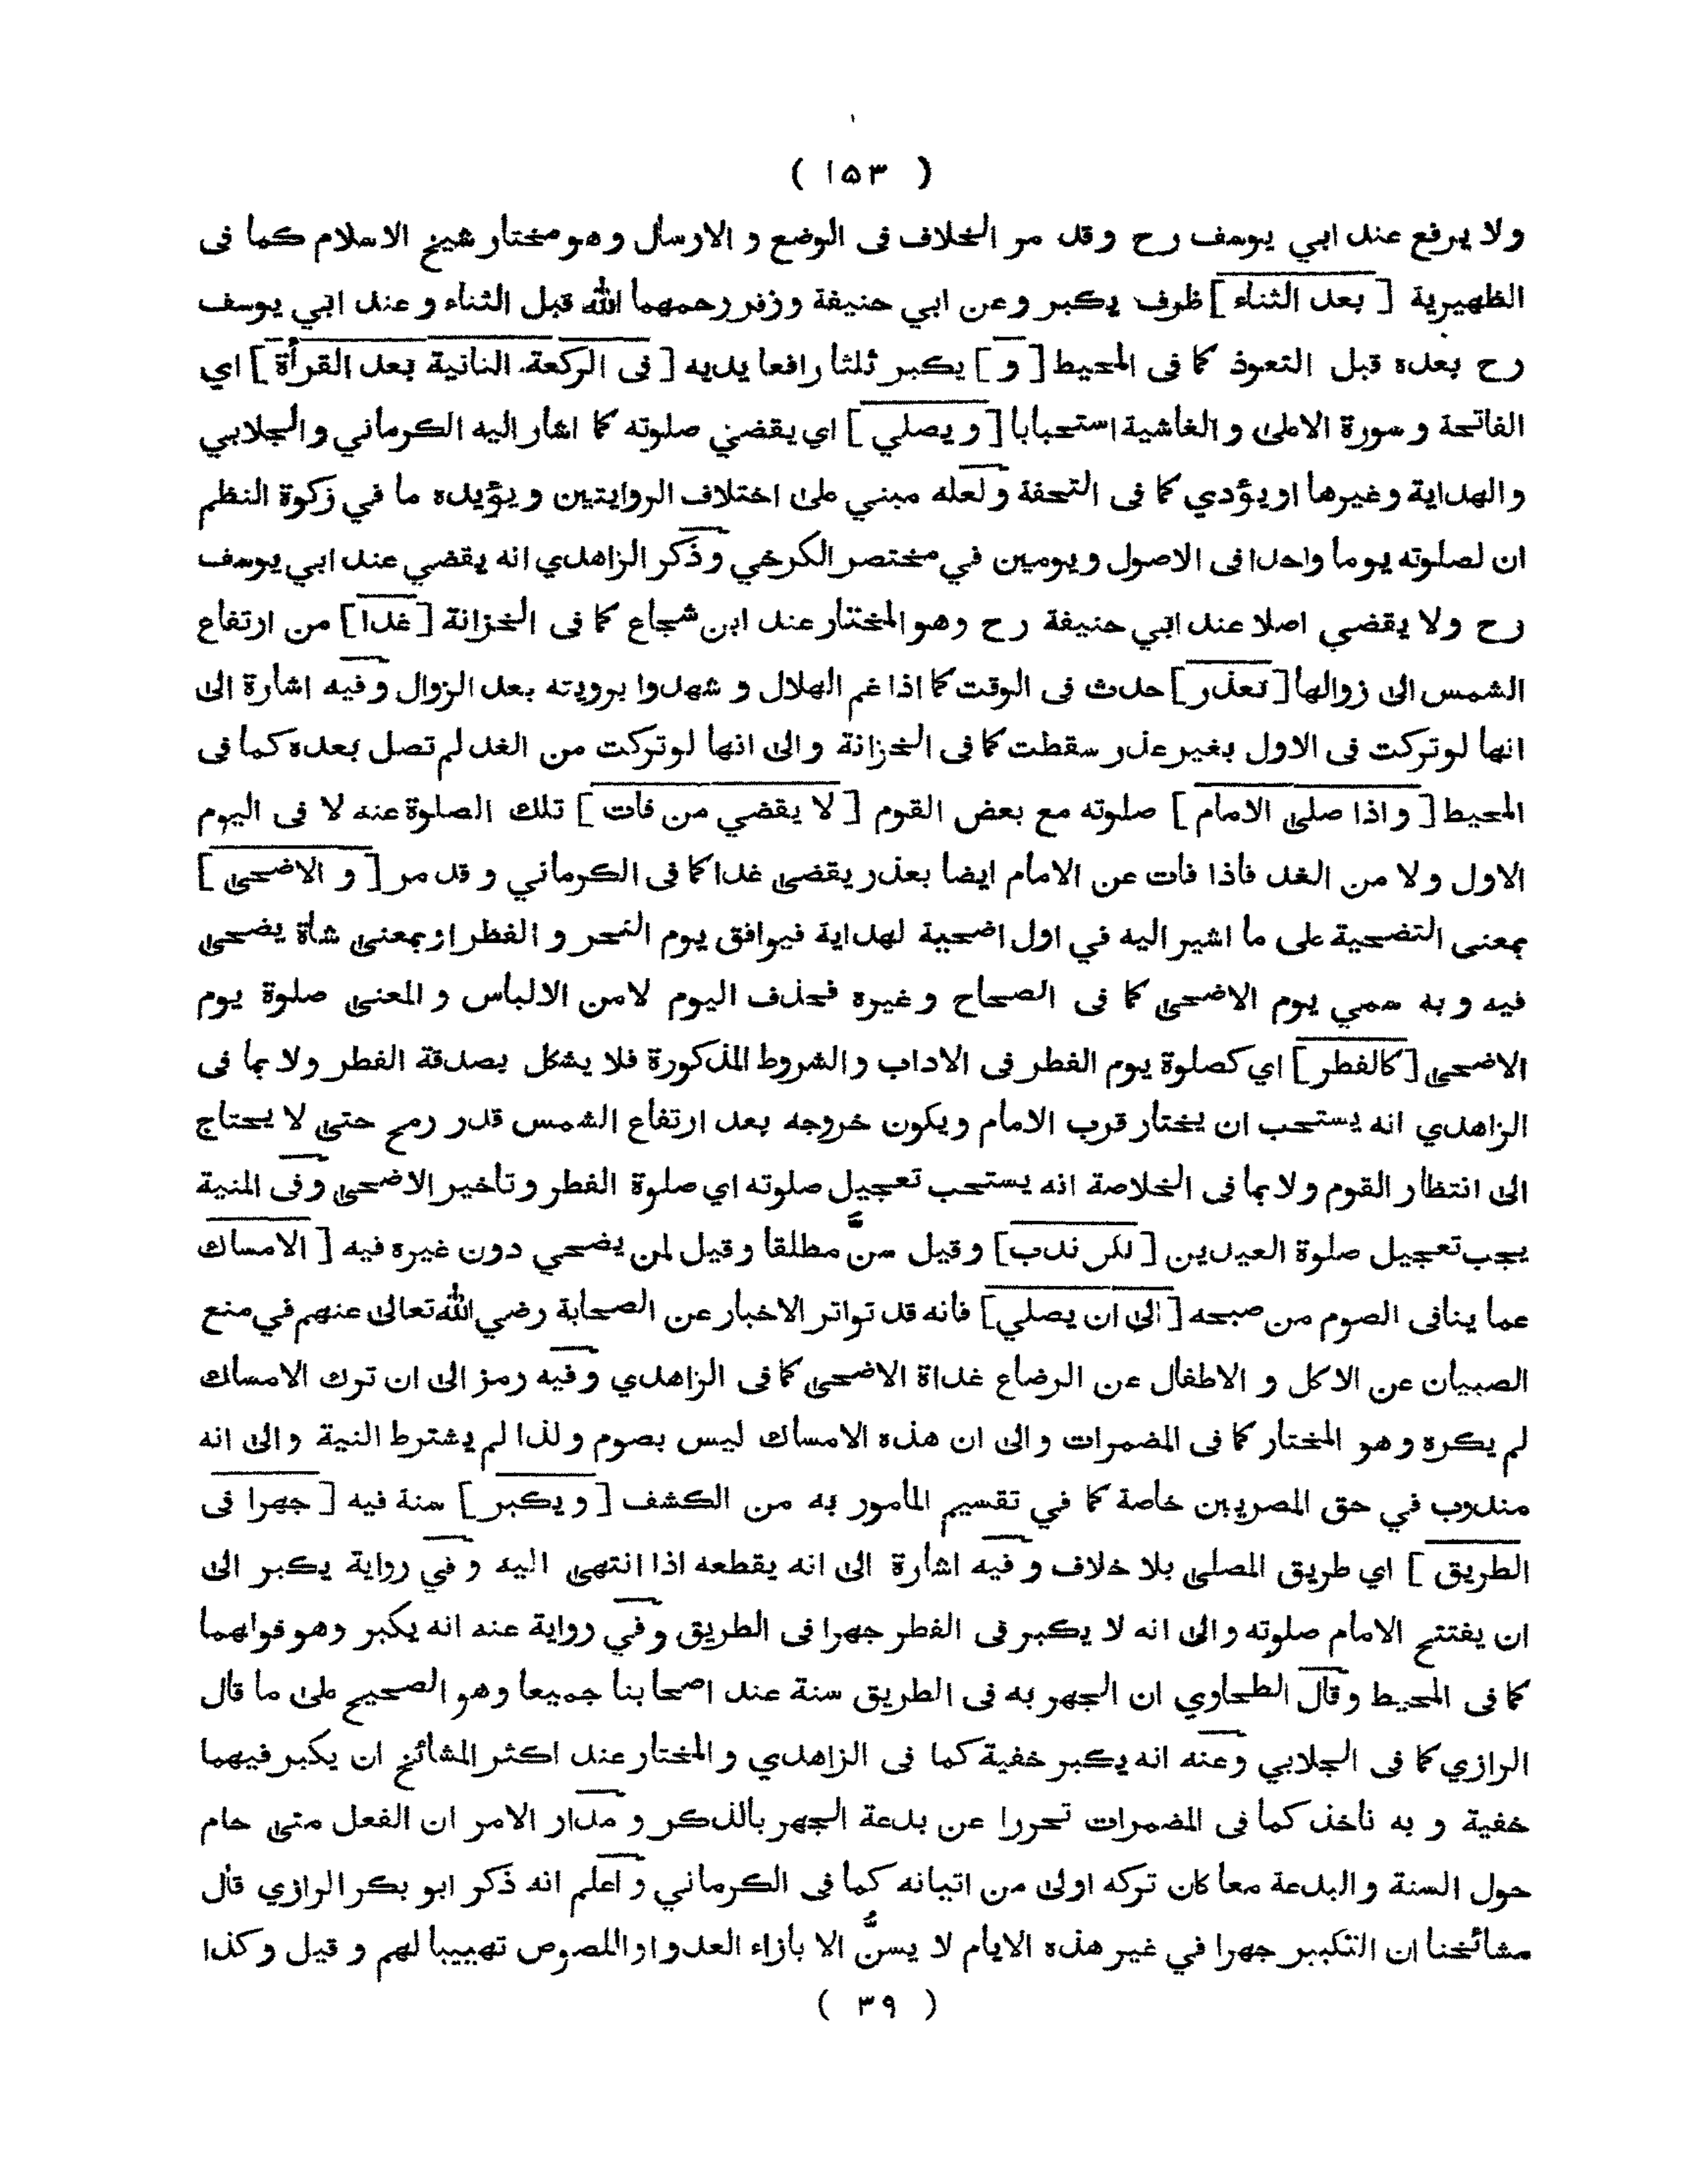 ( ١٥٣ )
ولا يرفع عند ابي يوسف رح وقد مر الخلاف فى الوضع و الارسال وهو مختار شيخ الاسلام كما فى
الظهيرية [ بعد الثناء ] ظرف يكبر وعن ابي حنيفة وزفر رحمهما الله قبل الثناء وعند ابي يوسف
رح بعده قبل التعوذ كما فى المحيط [ و ] يكبر ثلثا رافعا يديه [ فى الركعة الثانية بعد القرأة ] اي
الفاتحة وسورة الاعلى والغاشية استحبابا [ ويصلي ] اي يقضي صلوته كما اشار اليه الكرماني والجلابي
والهداية وغيرها او يؤدي كما فى التحفة ولعله مبني على اختلاف الروايتين ويؤيده ما في زكوة النظم
ان لصلوته يوما واحدا فى الاصول ويومين في مختصر الكرخي وذكر الزاهدي انه يقضي عند ابي يوسف
رح ولا يقضي اصلا عند ابي حنيفة رح وهو المختار عند ابن شجاع كما فى الخزانة [ غدا ] من ارتفاع
الشمس الى زوالها [ تعذر ] حدث فى الوقت كما اذا غم الهلال و شهدوا برويته بعد الزوال وفيه اشارة الى
انها لو تركت فى الاول بغير عذر سقطت كما فى الخزانة والى انها لو تركت من الغد لم تصل بعده كما فى
المحيط [ واذا صلى الامام ] صلوته مع بعض القوم [ لا يقضي من فات ] تلك الصلوة عنه لا فى اليوم
الاول ولا من الغد فاذا فات عن الامام ايضا بعذر يقضى غدا كما فى الكرماني و قد مر [ و الاضحى ]
بمعنى التضحية على ما اشير اليه في اول اضحية لهداية فيوافق يوم النحر و الفطر او بمعنى شاة يضحى
فيه وبه سمي يوم الاضحى كما فى الصحاح وغيره فحذف اليوم لامن الالباس و المعنى صلوة يوم
الاضحى [ كالفطر ] اي كصلوة يوم الفطر فى الاداب والشروط المذكورة فلا يشكل بصدقة الفطر ولا بما فى
الزاهدي انه يستحب ان يختار قرب الامام ويكون خروجه بعد ارتفاع الشمس قدر رمح حتى لا يحتاج
الى انتظار القوم ولا بما فى الخلاصة انه يستحب تعجيل صلوته اي صلوة الفطر وتأخير الاضحى وفى المنية
يجب تعجيل صلوة العيدين [ لكن ندب ] وقيل سنَّ مطلقا وقيل لمن يضحي دون غيره فيه [ الامساك
عما ينافى الصوم من صبحه [ الى ان يصلي ] فانه قد تواتر الاخبار عن الصحابة رضي الله تعالى عنهم في منع
الصبيان عن الاكل و الاطفال عن الرضاع غداة الاضحى كما فى الزاهدي وفيه رمز الى ان ترك الامساك
لم يكره وهو المختار كما فى المضمرات والى ان هذه الامساك ليس بصوم ولذا لم يشترط النية والى انه
مندوب في حق المصريين خاصة كما في تقسيم المأمور به من الكشف [ ويكبر ] سنة فيه [ جهرا فى
الطريق ] اي طريق المصلى بلا خلاف وفيه اشارة الى انه يقطعه اذا انتهى اليه وفي رواية يكبر الى
ان يفتتح الامام صلوته والى انه لا يكبر فى الفطر جهرا فى الطريق وفي رواية عنه انه يكبر وهو قولهما
كما فى المحيط وقال الطحاوي ان الجهر به فى الطريق سنة عند اصحابنا جميعا وهو الصحيح على ما قال
الرازي كما فى الجلابي وعنه انه يكبر خفية كما فى الزاهدي والمختار عند اكثر المشائخ ان يكبر فيهما
خفية و به ناخذ كما فى المضمرات تحررا عن بدعة الجهر بالذكر و مدار الامر ان الفعل متى حام
حول السنة والبدعة معا كان تركه اولى من اتيانه كما فى الكرماني و اعلم انه ذكر ابو بكر الرازي قال
مشائخنا ان التكبير جهرا في غير هذه الايام لا يسنُّ الا بأزاء العدو او اللصوص تهييبا لهم و قيل وكذا
( ٣٩ )